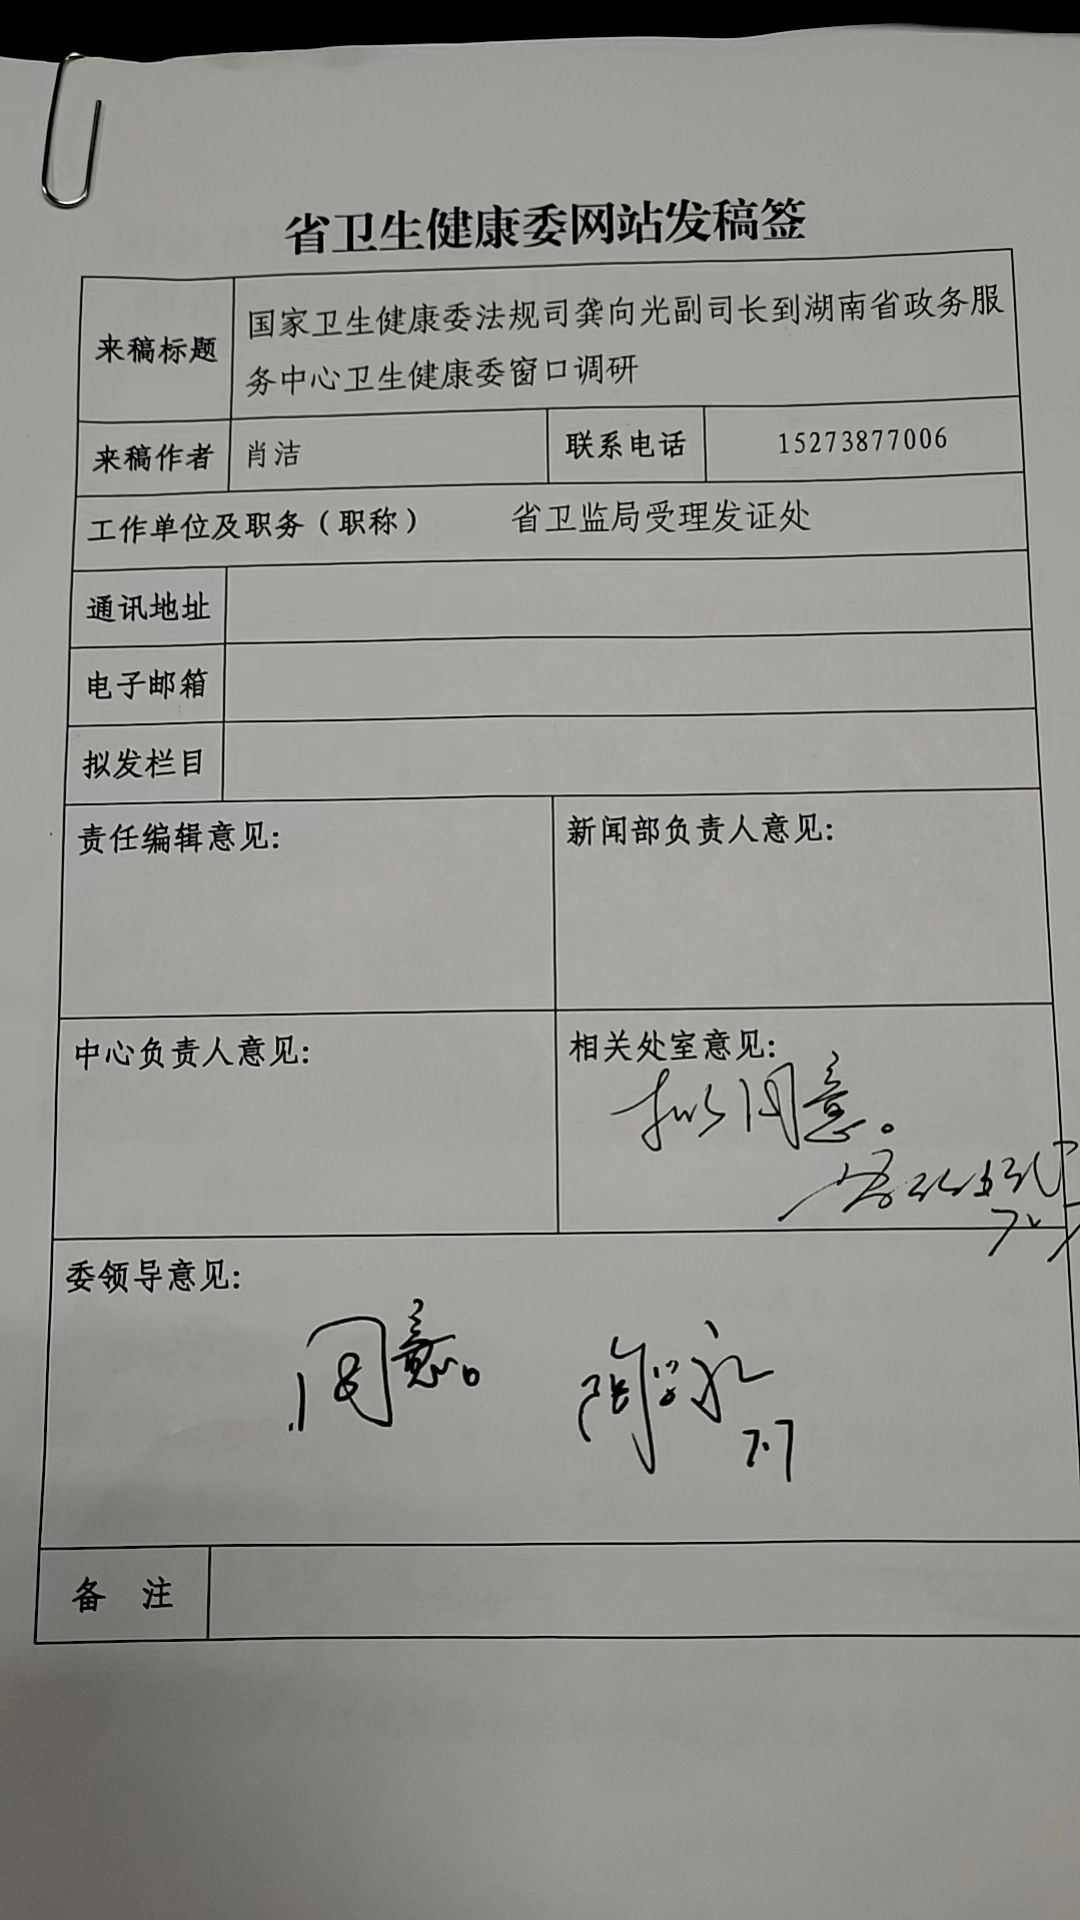 省卫生健康委网站发稿签
来稿标题
国家卫生健康委法规司龚向光副司长到湖南省政务服
务中心卫生健康委窗口调研
来稿作者 肖洁 联系电话 15273877006
工作单位及职务（职称） 省卫监局受理发证处
通讯地址
电子邮箱
拟发栏目
责任编辑意见: 新闻部负责人意见:
中心负责人意见: 相关处室意见:
拟同意。
委领导意见:
同意。
7.7
备 注